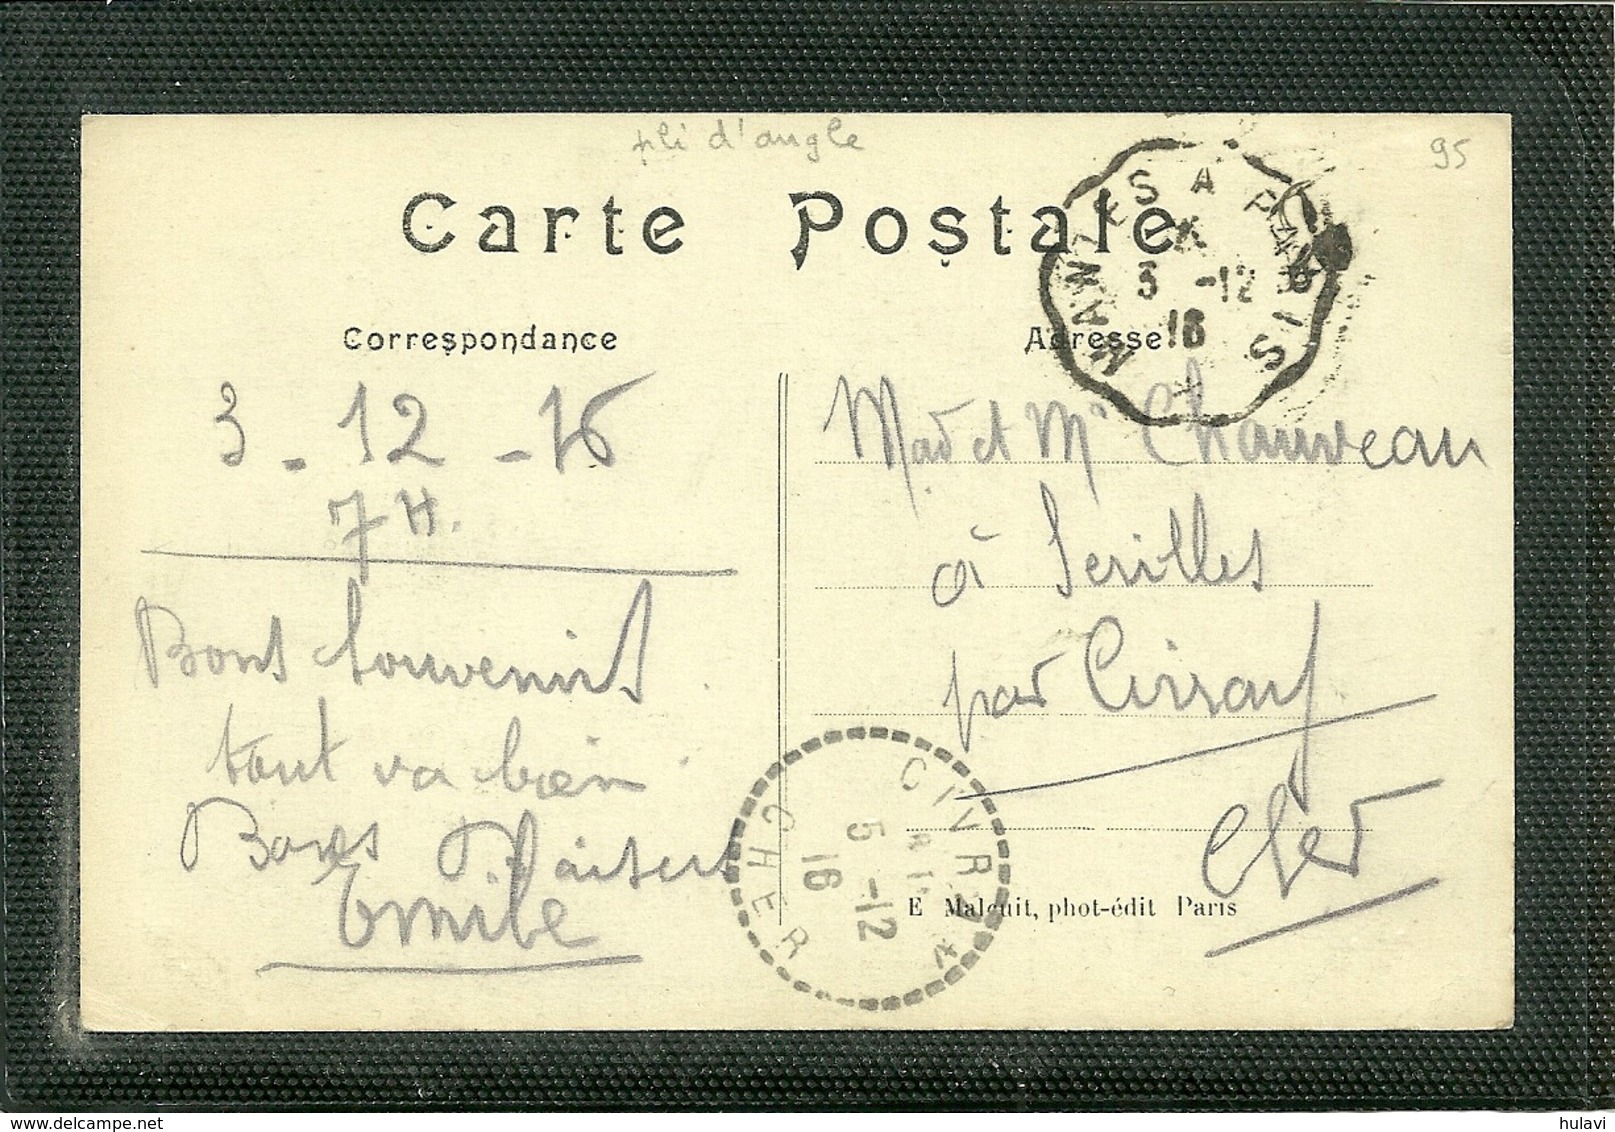 pli d'angle
95
Carte Postale
MANTES A PARIS
3 -12
16
Correspondance
Adresse
3 - 12 - 16
7 H.
Bons Souvenirs
tout va bien
Bons Baisers
Emile
Mad et Mr Chauveau
à
par Civray
Cher
CIVRAY
5 -12
16
CHER
E Malcuit, phot-édit Paris
hulavi